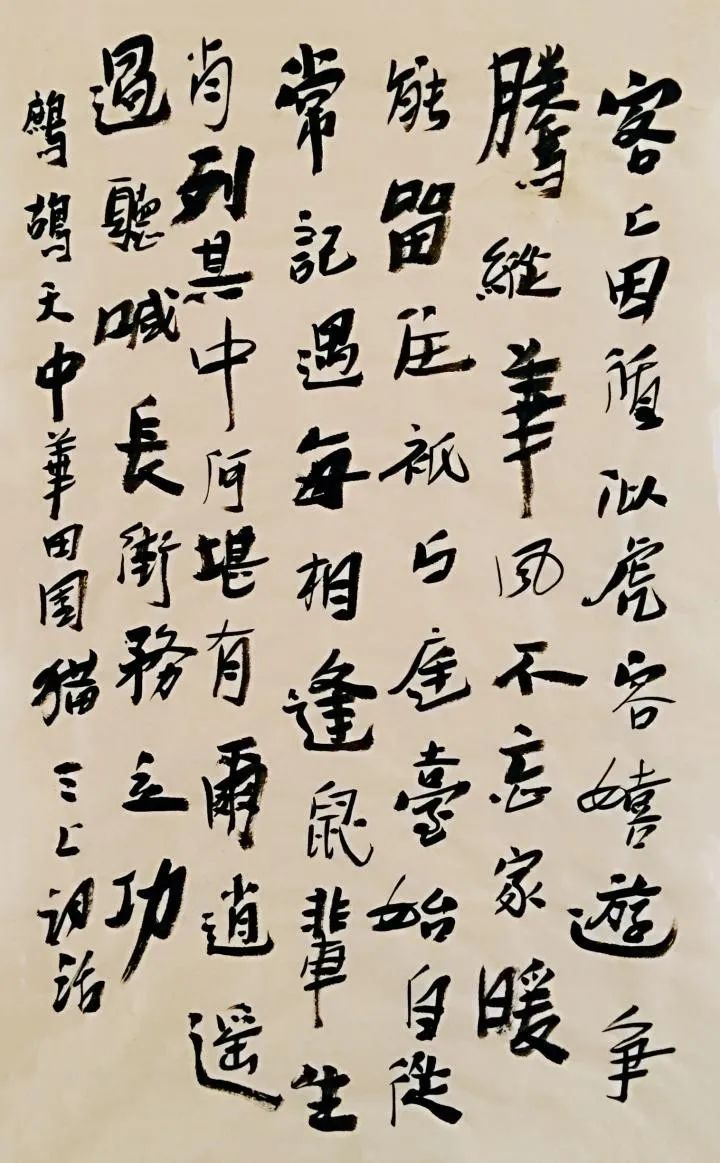 客上因似虎容嬉遊爭
騰縱華風不忘家暖
能留住祇与庭臺始自從
常記遇每相逢鼠輩生
肖列其中何堪有爾逍遥
過聽喊長街務立功
鷓鴣天中華田園猫三上詞話